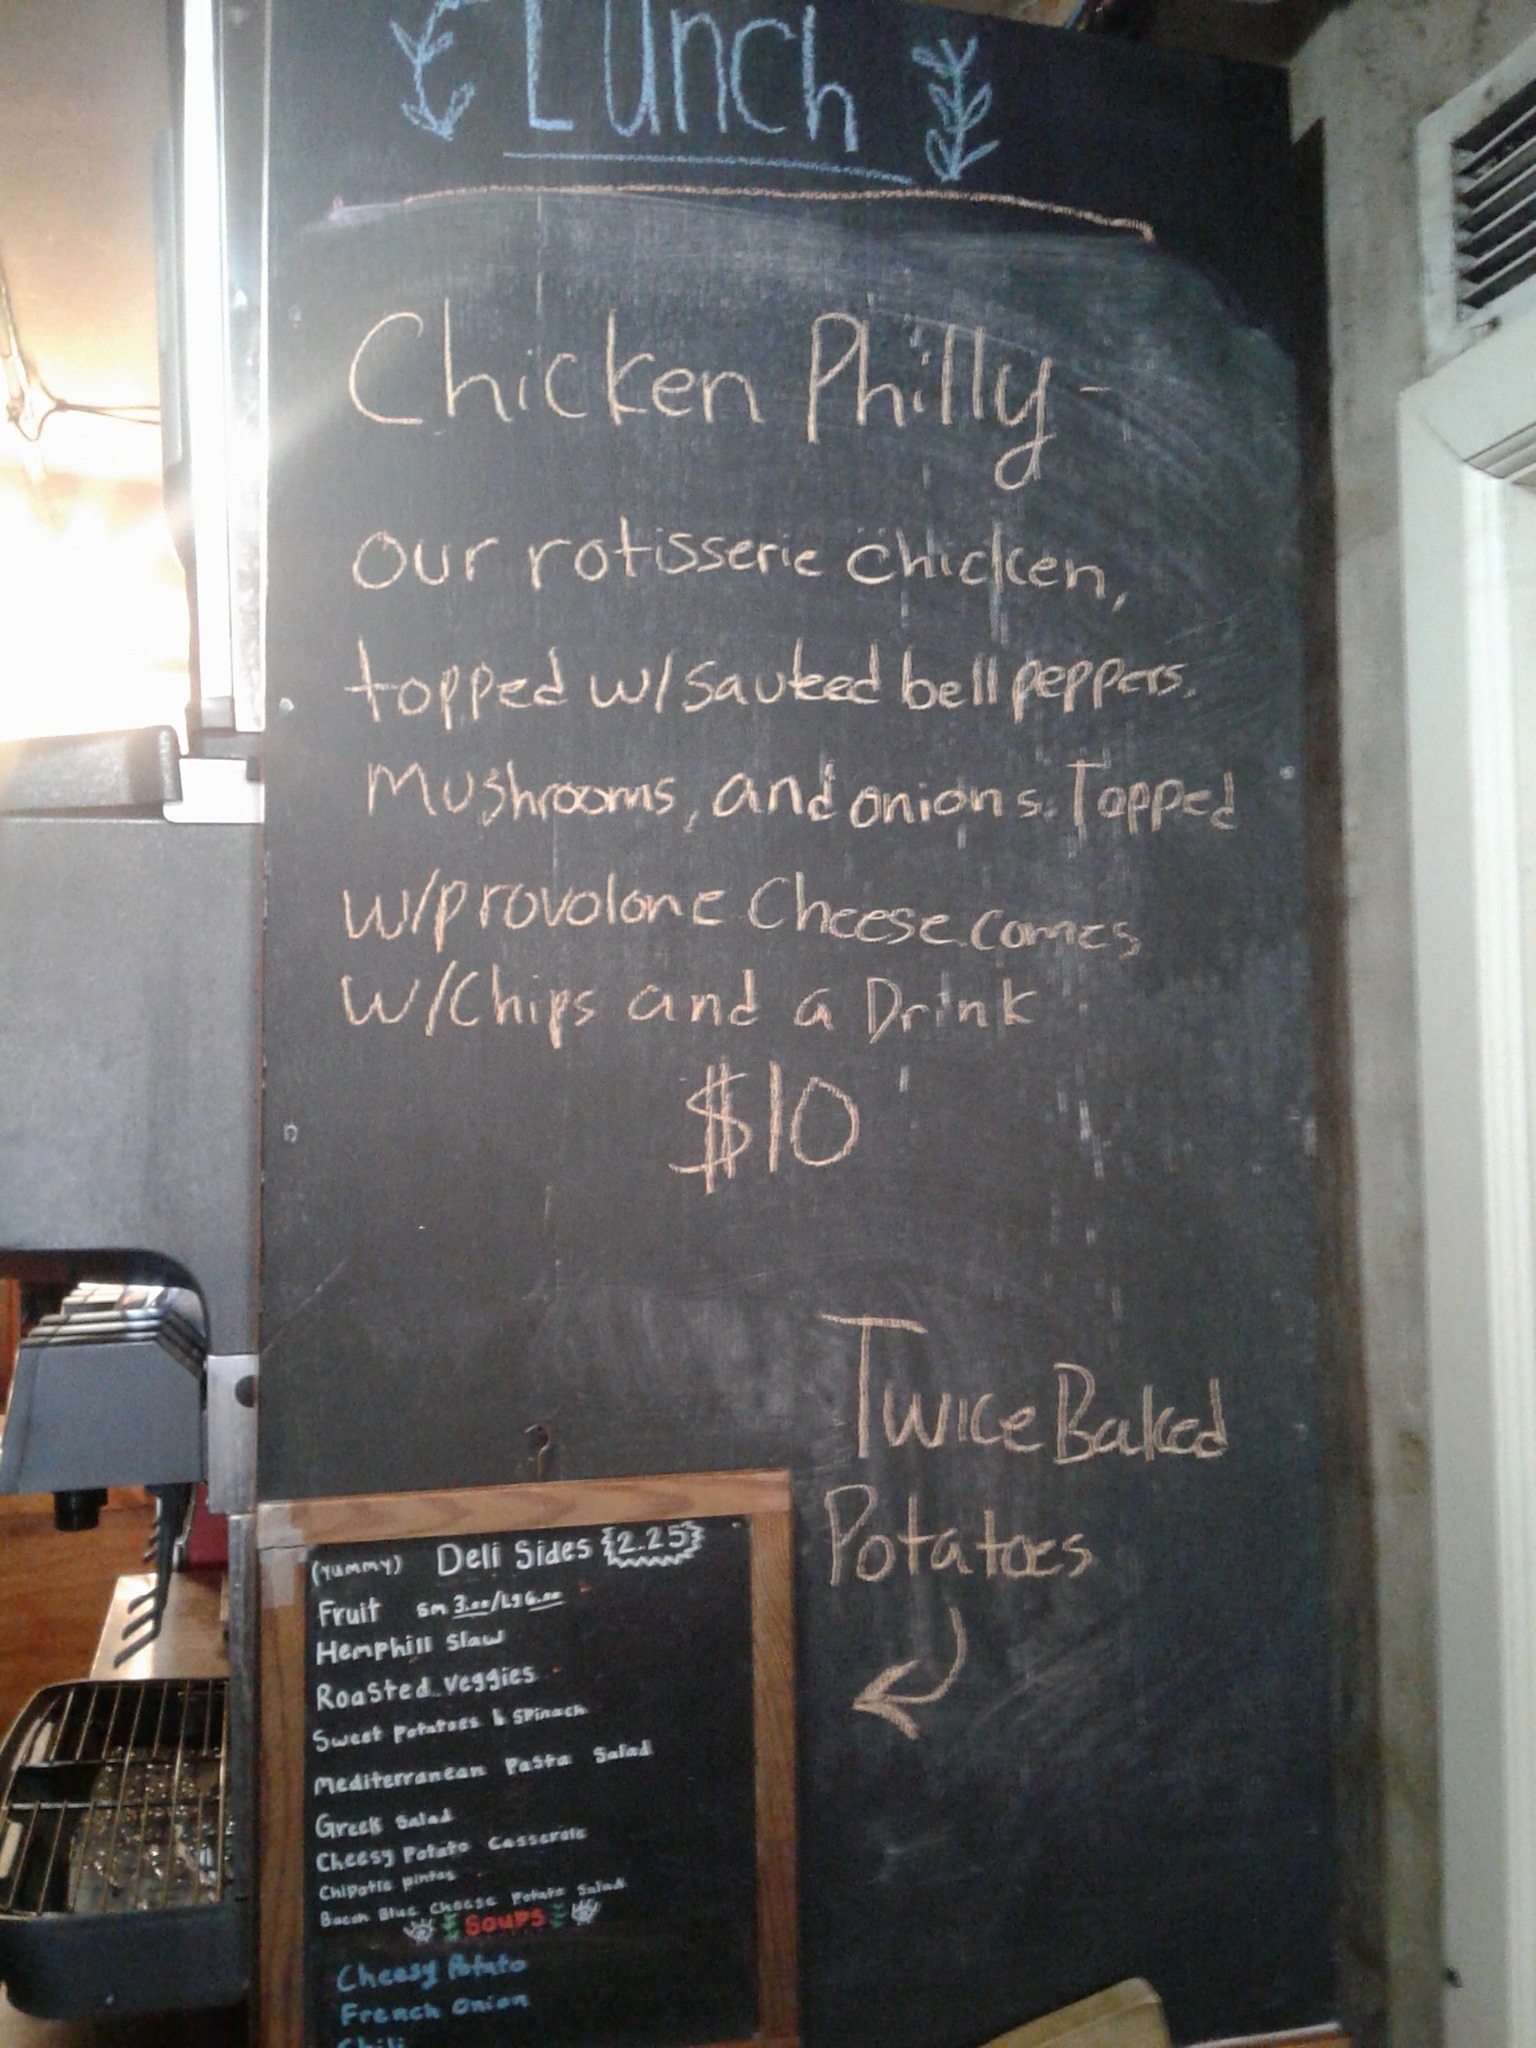 Lunch
Chicken Philly -
our rotisserie chicken,
topped w/sauteed bell peppers.
Mushrooms, and onions. Topped
w/provolone Cheese comes
w/Chips and a Drink
$10
Twice Baked
Potatoes
(yummy) Deli Sides {2.25}
Fruit sm 3.00/Lg 6.00
Hemphill Slaw
Roasted Veggies
Sweet Potatoes & Spinach
Mediterranean Pasta Salad
Greek Salad
Cheesy Potato Casserole
Chipotle pintos
Bacon Blue Cheese Potato Salad
Soups
Cheesy Potato
French Onion
Chili